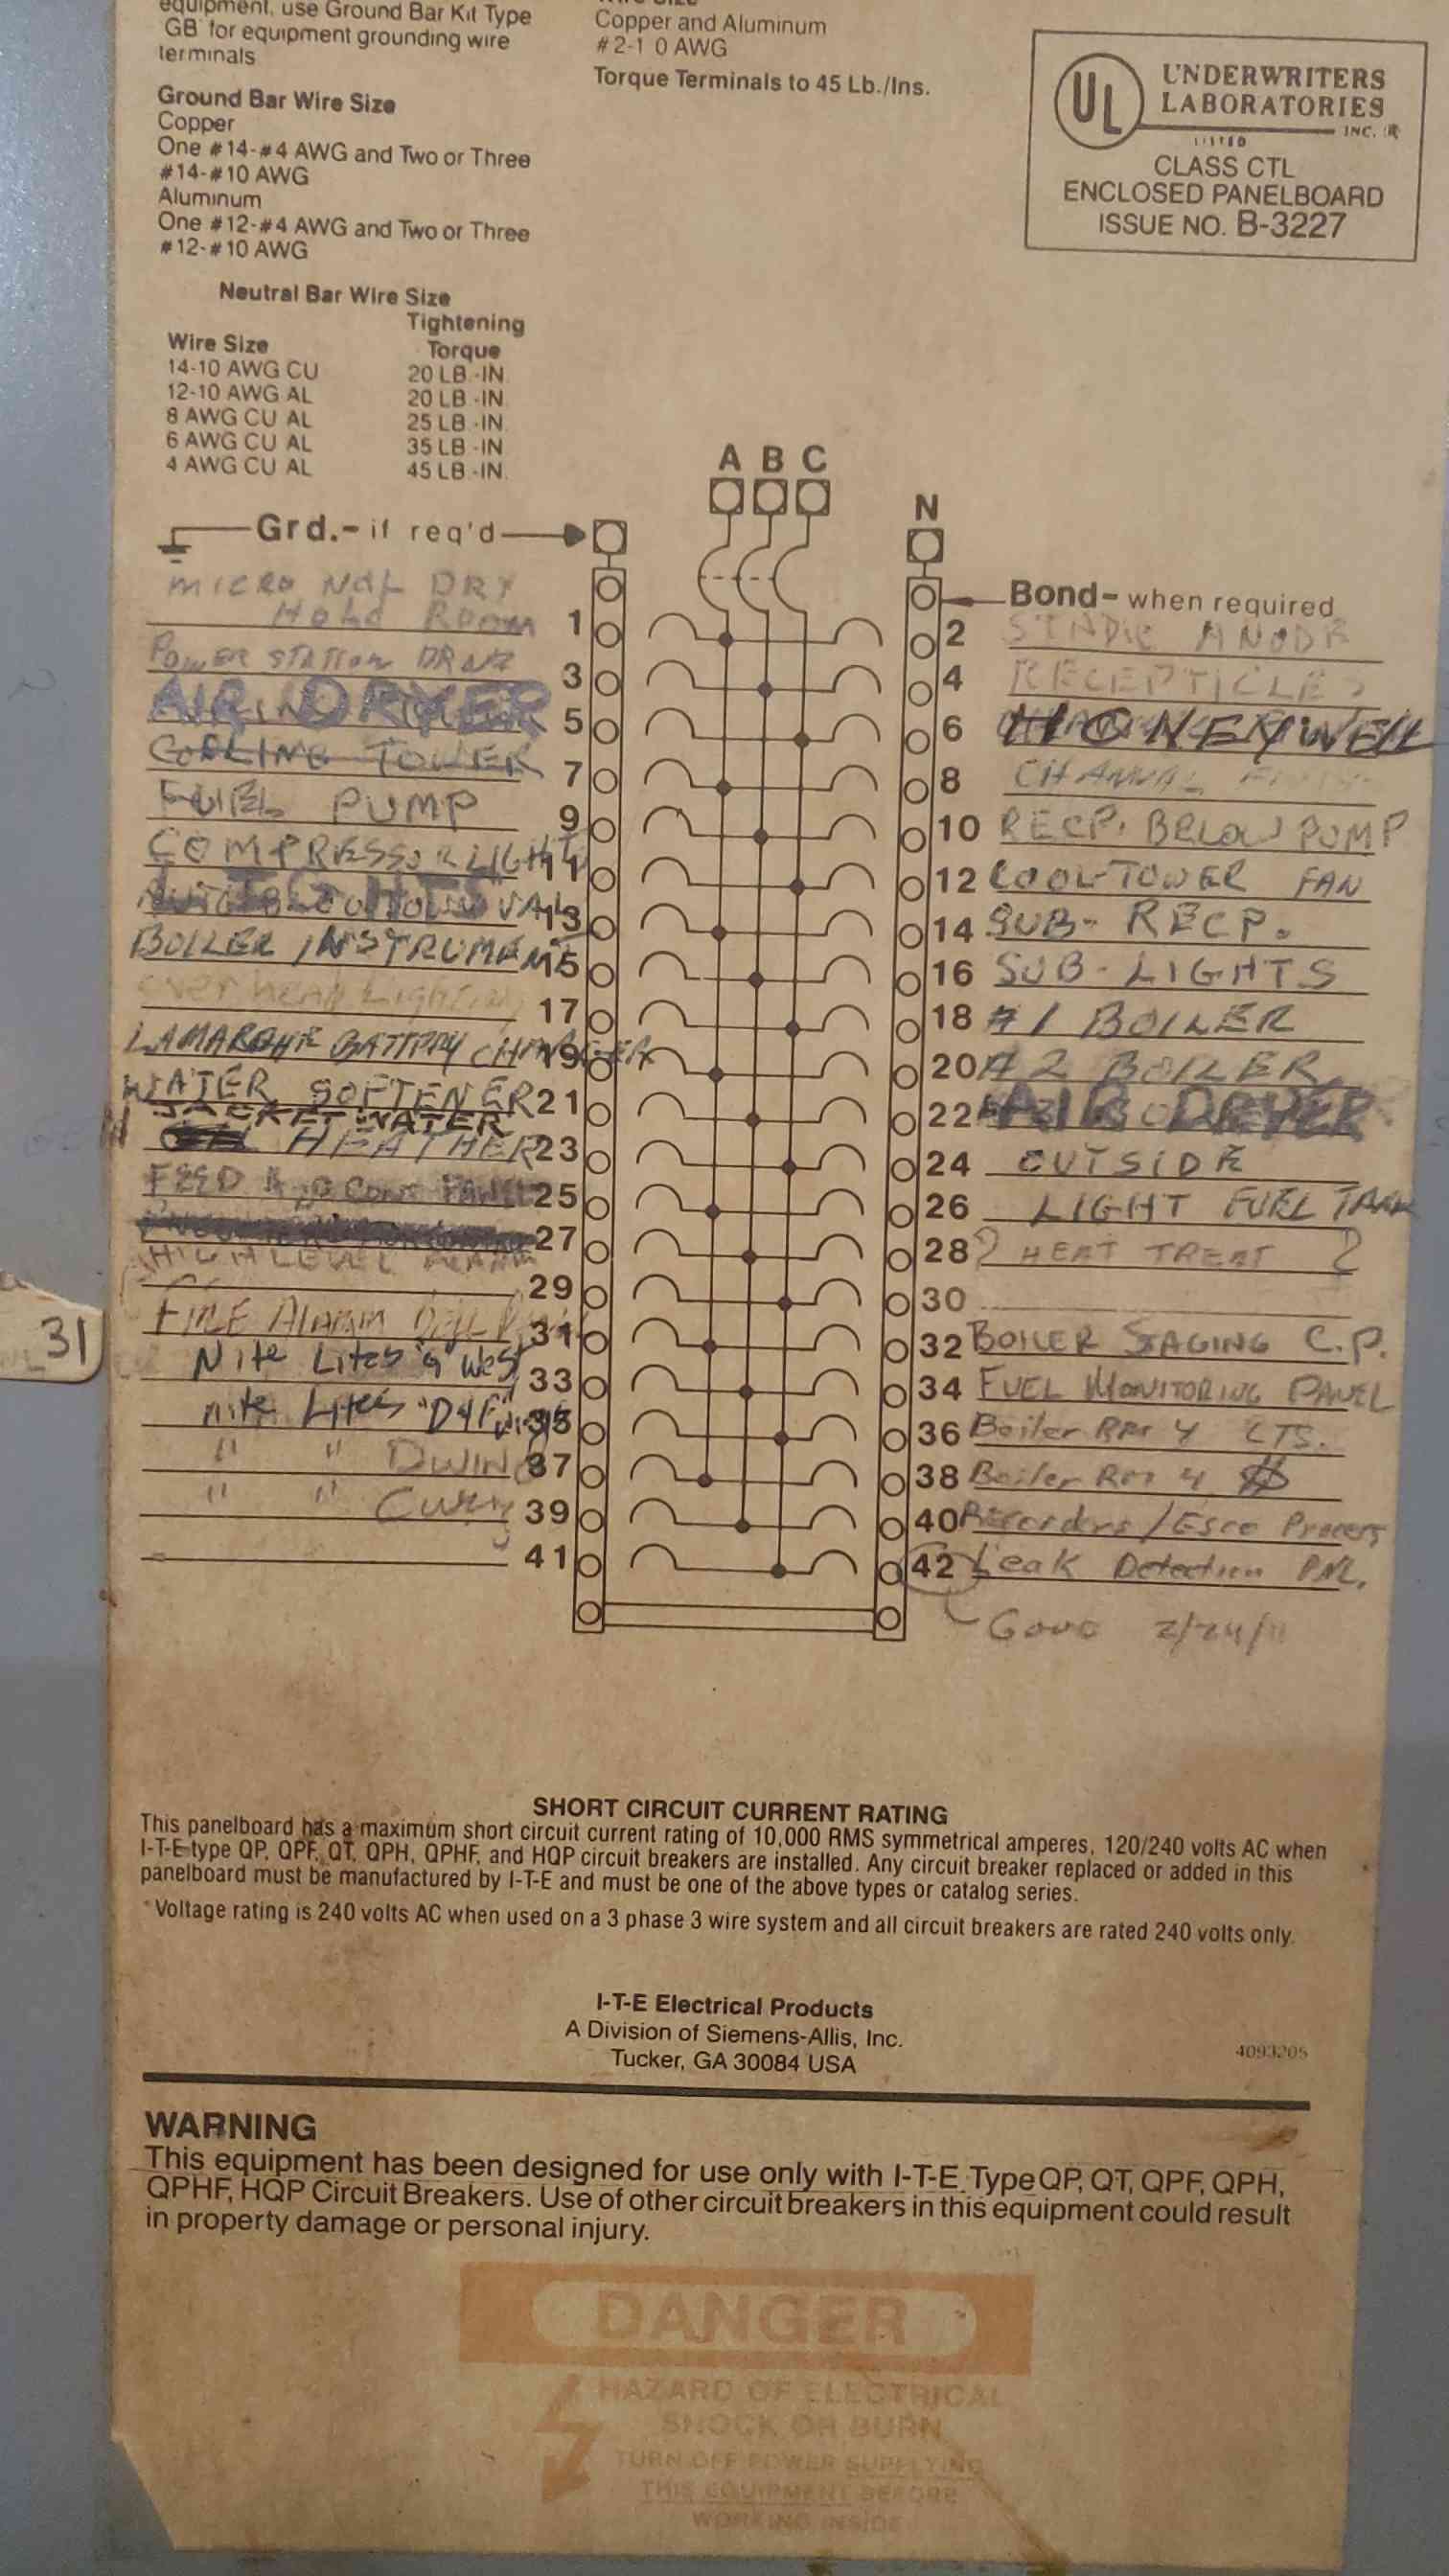 equipment, use Ground Bar Kit Type
GB for equipment grounding wire
terminals
Ground Bar Wire Size
Copper
One #14-#4 AWG and Two or Three
#14-#10 AWG
Aluminum
One #12-#4 AWG and Two or Three
#12-#10 AWG
Neutral Bar Wire Size
Wire Size Tightening Torque
14-10 AWG CU 20 LB.-IN.
12-10 AWG AL 20 LB.-IN.
8 AWG CU AL 25 LB.-IN.
6 AWG CU AL 35 LB.-IN.
4 AWG CU AL 45 LB.-IN.
Wire Size
Copper and Aluminum
#2-1 0 AWG
Torque Terminals to 45 Lb./Ins.
UL UNDERWRITERS
LABORATORIES
INC. ®
LISTED
CLASS CTL
ENCLOSED PANELBOARD
ISSUE NO. B-3227
A B C
N
Grd.- if req'd
Bond- when required
MICRO DRY
HOLD ROOM 1
2
POWER STATION 3
4 RECEPTICLES
AIR DRYER 5
6 HONEYWELL
COOLING TOWER 7
8 CHANNAL
FUEL PUMP 9
10 RECP. BELOW PUMP
COMPRESSOR LIGHTS 11
12 COOL-TOWER FAN
13
14 SUB-RECP.
BOILER INSTRUMENT 15
16 SUB-LIGHTS
OVERHEAD LIGHTING 17
18 #1 BOILER
LAMARCHE BATTERY CHARGER 19
20 #2 BOILER
WATER SOFTENER 21
22 AIR DRYER
JACKET WATER
HEATHER 23
24 OUTSIDE
FEED H2O CONT PANEL 25
26 LIGHT FUEL TANK
27
28 ? HEAT TREAT ?
HIGH LEVEL ALARM
29
30
FIRE ALARM 31
32 BOILER STAGING C.P.
Nite Lites West 33
34 FUEL MONITORING PANEL
nite Lites "D4F 35
36 Boiler Rm 4 CTS.
" " DWING 37
38 Boiler Rm 4
" " CWing 39
40 Recorders/Esco Process
41
42 Leak Detection PNL.
2/24/11
31
SHORT CIRCUIT CURRENT RATING
This panelboard has a maximum short circuit current rating of 10,000 RMS symmetrical amperes, 120/240 volts AC when
I-T-E type QP, QPF, QT, QPH, QPHF, and HQP circuit breakers are installed. Any circuit breaker replaced or added in this
panelboard must be manufactured by I-T-E and must be one of the above types or catalog series.
*Voltage rating is 240 volts AC when used on a 3 phase 3 wire system and all circuit breakers are rated 240 volts only.
I-T-E Electrical Products
A Division of Siemens-Allis, Inc.
Tucker, GA 30084 USA
4093205
WARNING
This equipment has been designed for use only with I-T-E Type QP, QT, QPF, QPH,
QPHF, HQP Circuit Breakers. Use of other circuit breakers in this equipment could result
in property damage or personal injury.
DANGER
HAZARD OF ELECTRICAL
SHOCK OR BURN
TURN OFF POWER SUPPLYING
THIS EQUIPMENT BEFORE
WORKING INSIDE